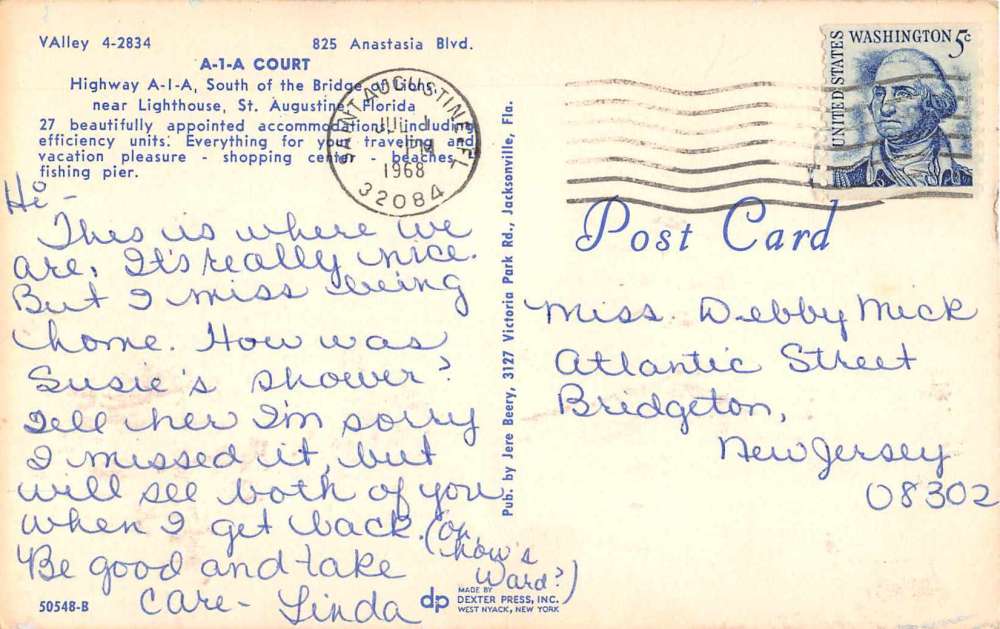 VAlley 4-2834 825 Anastasia Blvd.
A-1-A COURT
Highway A-1-A, South of the Bridge of Lions,
near Lighthouse, St. Augustine, Florida
27 beautifully appointed accommodations including
efficiency units. Everything for your traveling and
vacation pleasure - shopping center - beaches,
fishing pier.
Hi -
This is where we
are. It's really nice.
But I miss being
home. How was
Susie's shower?
Tell her I'm sorry
I missed it, but
will see both of you
when I get back. (Oh,
how's
Ward?)
Be good and take
care - Linda
50548-B
dp
MADE BY
DEXTER PRESS, INC.
WEST NYACK, NEW YORK
Pub. by Jere Beery, 3127 Victoria Park Rd., Jacksonville, Fla.
SAINT AUGUSTINE FL
JUL 1
PM
1968
32084
UNITED STATES WASHINGTON 5c
Post Card
Miss. Debby Mick
Atlantic Street
Bridgeton,
New Jersey
08302